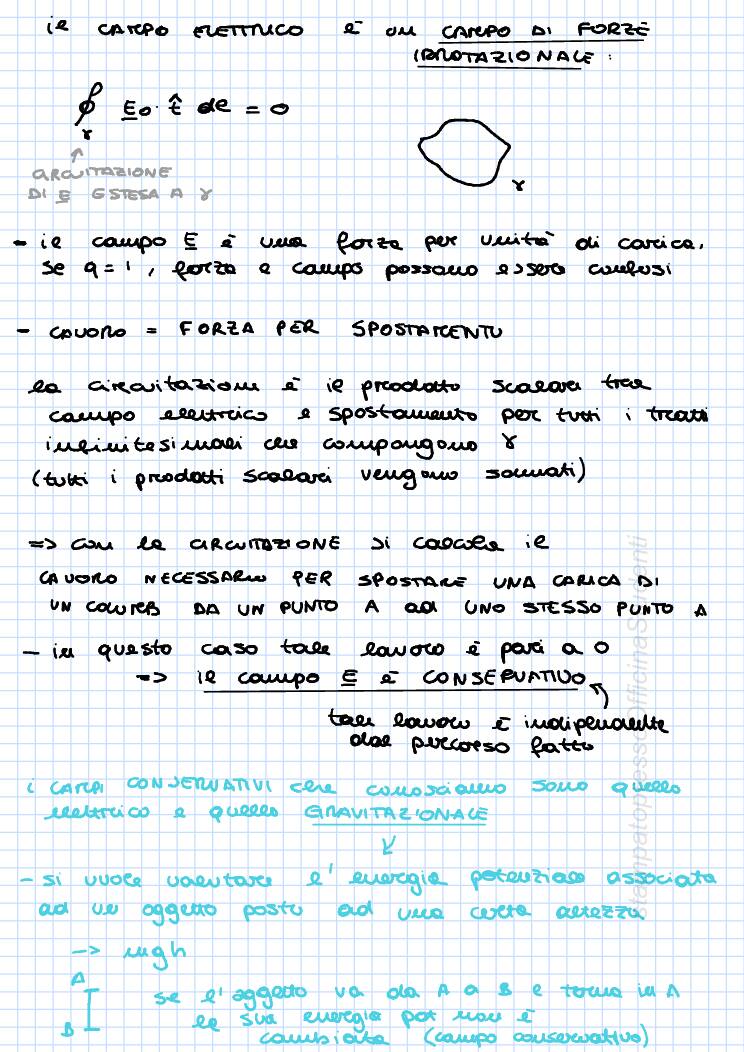 il CAMPO ELETTRICO è un CAMPO DI FORZE
IRROTAZIONALE:
∮γ E0 · t̂ dl = 0
γ
CIRCUITAZIONE
DI E ESTESA A γ
- il campo E è una forza per unità di carica.
se q=1, forza e campo possono essere confusi
- LAVORO = FORZA PER SPOSTAMENTO
la circuitazione è il prodotto scalare tra
campo elettrico e spostamento per tutti i tratti
infinitesimali che compongono γ
(tutti i prodotti scalari vengono sommati)
=> con la CIRCUITAZIONE si calcola il
LAVORO NECESSARIO PER SPOSTARE UNA CARICA DI
UN COULOMB DA UN PUNTO A ad UNO STESSO PUNTO A
- in questo caso tale lavoro è pari a 0
=> il campo E è CONSERVATIVO
tale lavoro è indipendente
dal percorso fatto
i CAMPI CONSERVATIVI che conosciamo sono quello
elettrico e quello GRAVITAZIONALE
- si vuole valutare l'energia potenziale associata
ad un oggetto posto ad una certa altezza
-> mgh
A
B
se l'oggetto va da A a B e torna in A
la sua energia pot non è
cambiata (campo conservativo)
stampatopressoOfficinaStudenti